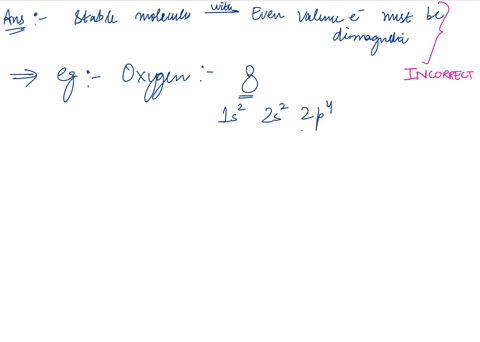 Ans :- Stable molecules with Even valence e⁻ must be
diamagnetic
INCORRECT
⇒ eg :- Oxygen :- 8
1s² 2s² 2p⁴